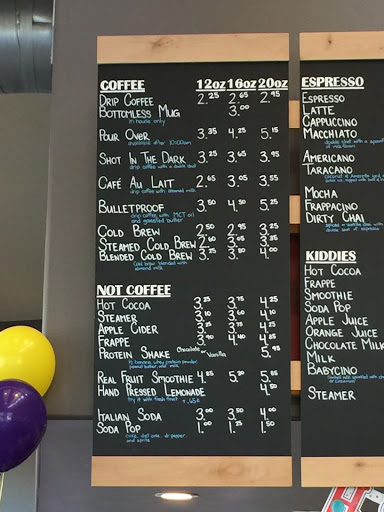 COFFEE 12oz 16oz 20oz
DRIP COFFEE 2.25 2.65 2.95
BOTTOMLESS MUG 3.00
in house only
POUR OVER 3.35 4.25 5.15
available after 10:00am
SHOT IN THE DARK 3.25 3.65 3.95
drip coffee with a double shot
CAFÉ AU LAIT 2.65 3.05 3.55
drip coffee with steamed milk
BULLETPROOF 3.50 4.50 5.25
drip coffee with MCT oil
and grassfed butter
COLD BREW 2.50 2.95 3.25
STEAMED COLD BREW 2.60 3.05 3.35
BLENDED COLD BREW 3.25 3.50 4.00
Cold brew blended with
almond milk
NOT COFFEE
HOT COCOA 3.25 3.75 4.25
STEAMER 3.10 3.60 4.10
APPLE CIDER 3.25 3.75 4.25
FRAPPE 3.90 4.40 4.85
PROTEIN SHAKE Chocolate or Vanilla 5.95
½ banana, whey protein powder,
peanut butter, and milk
REAL FRUIT SMOOTHIE 4.85 5.30 5.85
HAND PRESSED LEMONADE 4.50
try it with fresh fruit +.65¢
ITALIAN SODA 3.00 3.50 4.00
SODA POP 1.00 1.25 1.50
coke, diet coke, dr. pepper,
and sprite
ESPRESSO
ESPRESSO
LATTE
CAPPUCCINO
MACCHIATO
double shot with a spoonf
of milk foam
AMERICANO
TARACANO
MOCHA
FRAPPACINO
DIRTY CHAI
double shot of espresso
KIDDIES
HOT COCOA
FRAPPE
SMOOTHIE
SODA POP
APPLE JUICE
ORANGE JUICE
CHOCOLATE MILK
MILK
BABYCINO
or cinnamon
STEAMER